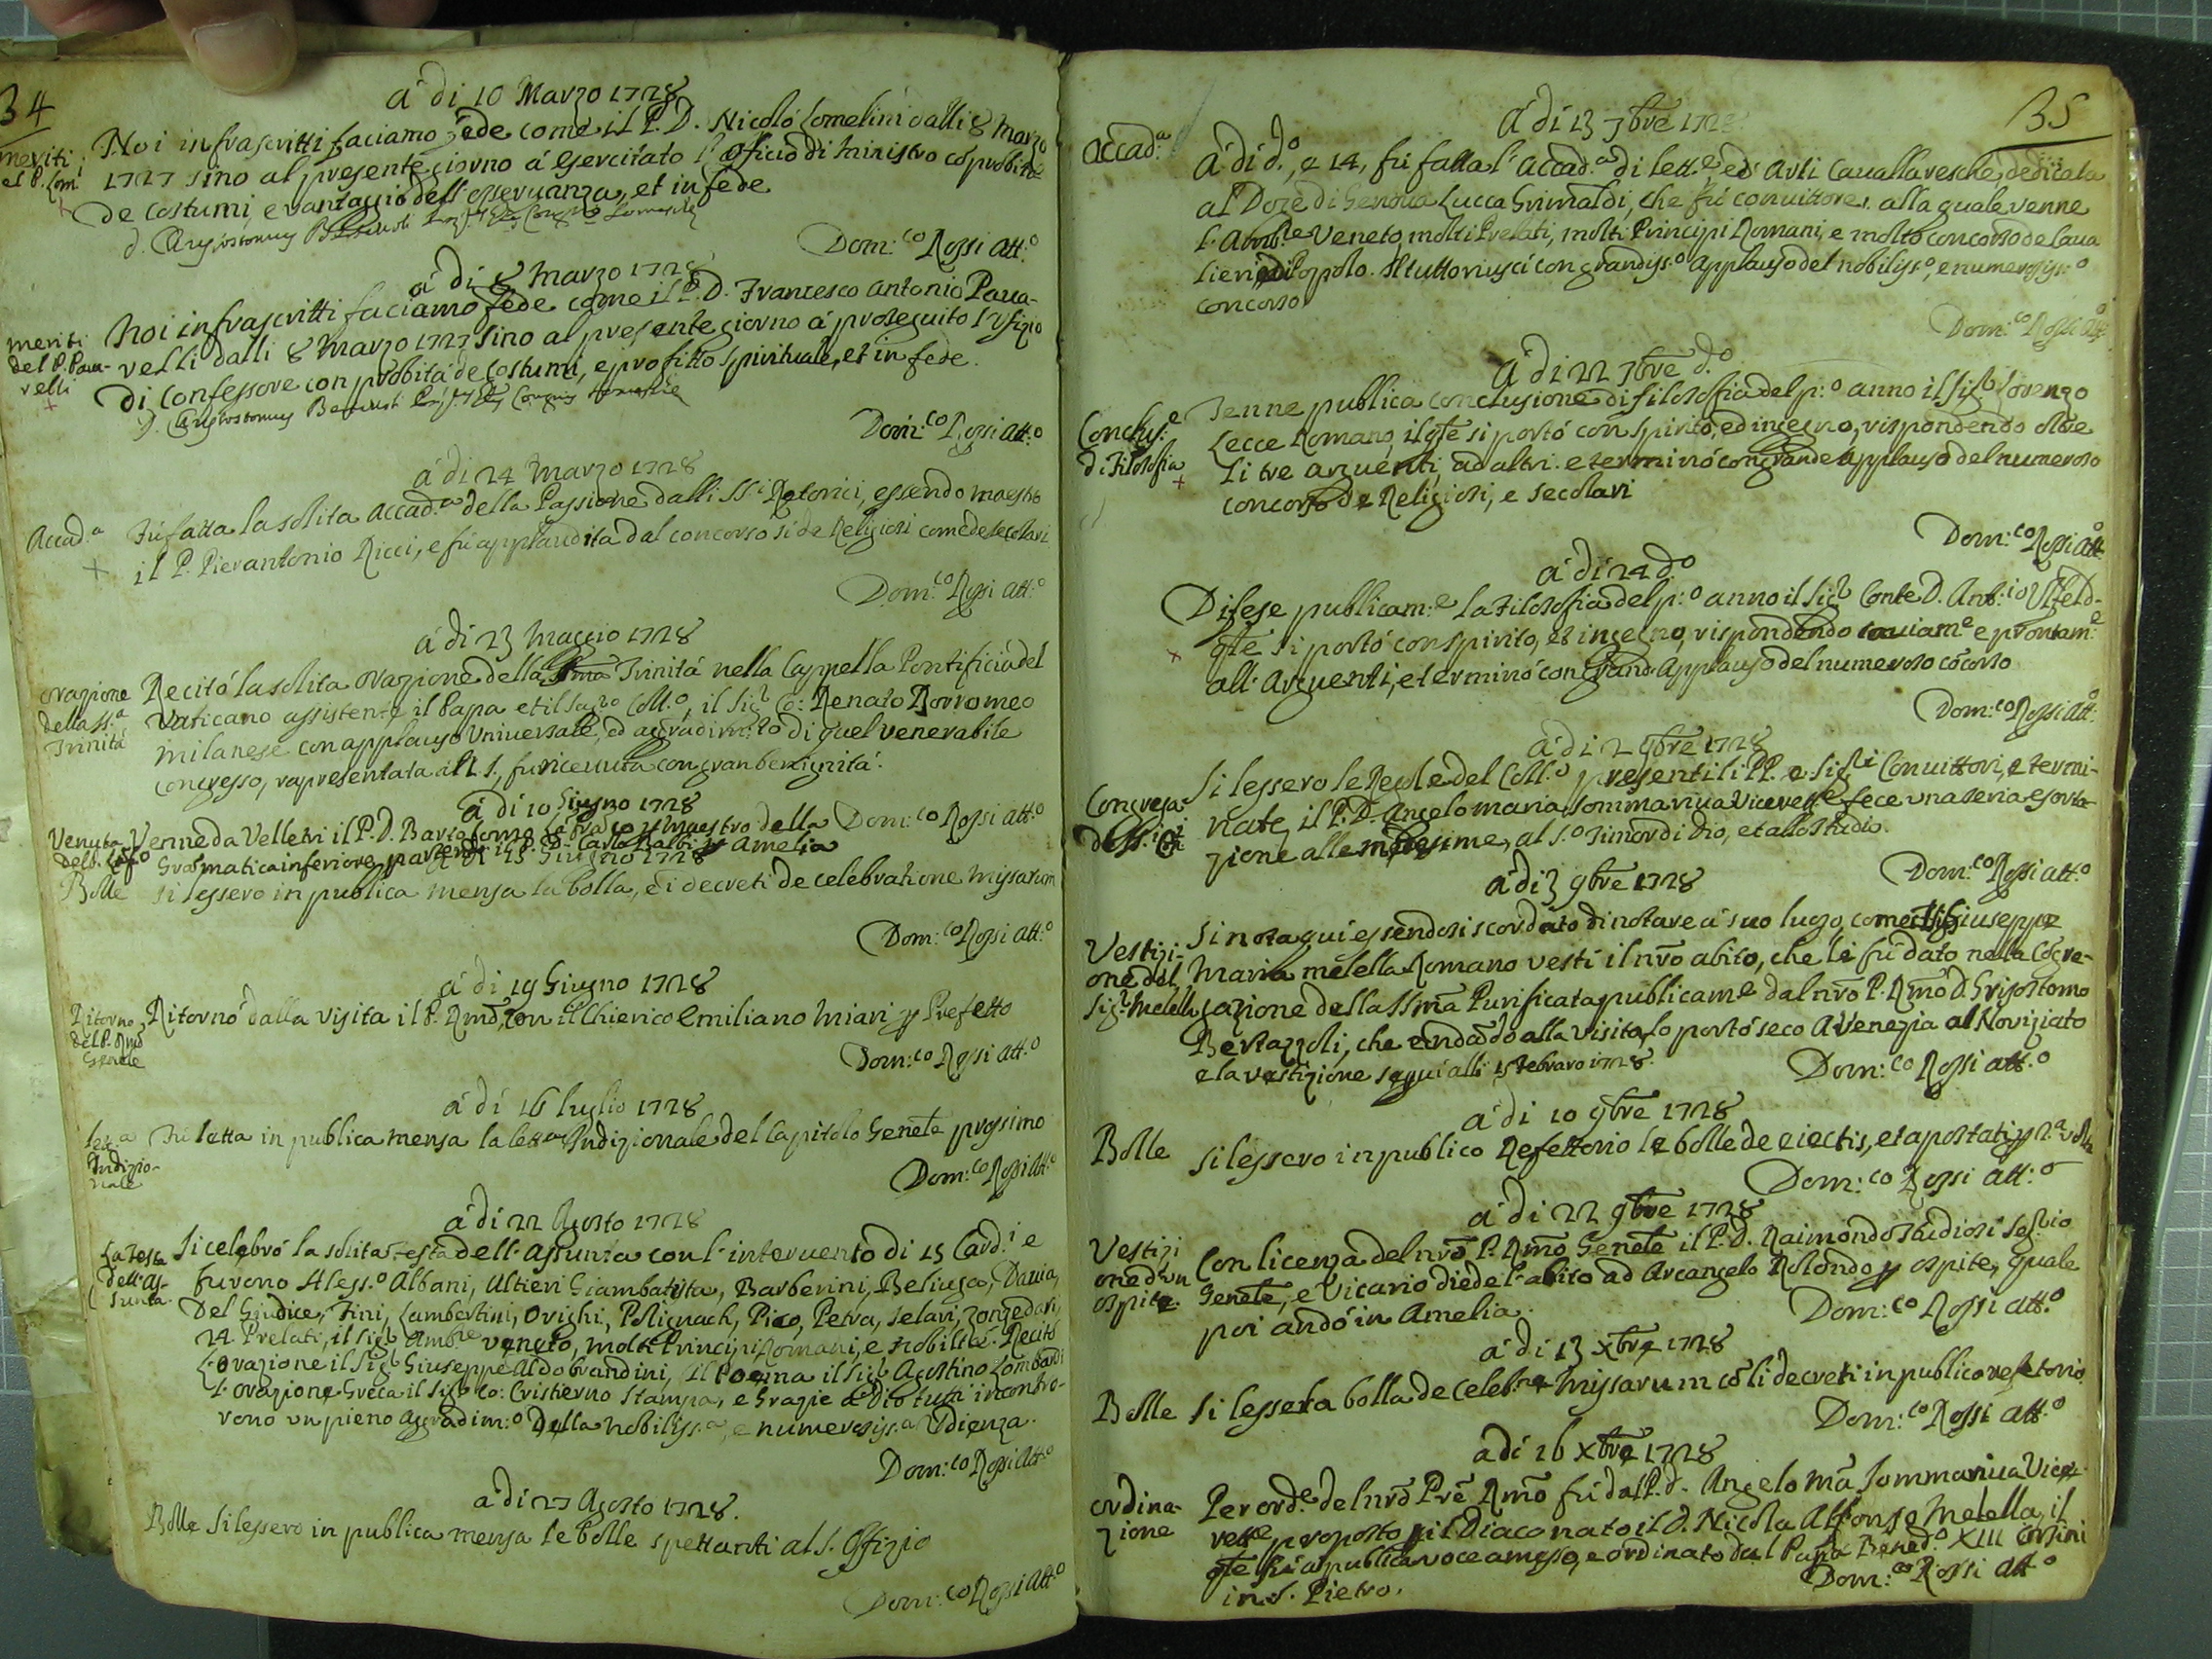 34
á di 10 Marzo 1728
meriti
del P. Lom.
Noi infrascritti faciamo fede come il P. D. Nicoló Lomelini dalli 8 Marzo
1727 sino al presente giorno á esercitato l'officio di Ministro co probitá
de costumi, e vantaggio dell'osservanza, et in fede
Dom:co Rossi att:o
á di 8 Marzo 1728
meriti
del P. Pava-
velli
Noi infrascritti faciamo fede come il P. D. Francesco Antonio Pava-
velli dalli 8 Marzo 1727 sino al presente giorno á proseguito l'ufizio
di Confessore con probitá de costumi, e profitto spirituale, et in fede.
Dom:co Rossi att:o
á di 24 Marzo 1728
Accad.a
Fu fatta la solita Accad.a della Passione dalli SS.i Retorici, essendo maestro
il P. Pierantonio Ricci, e fú applaudita dal concorso si de Religiosi come de secolari.
Dom:co Rossi att:o
á di 23 Maggio 1728
orazione
della SS.a
Trinitá
Recitó la solita orazione della SSma Trinitá nella Cappella Pontificia del
Vaticano assistente il Papa et il Sagro Coll.o, il Sig.r Co: Renato Borromeo
Milanese con applauso universale, ed aggradim.to di quel venerabile
congresso, rapresentata al P. S., fu ricevuta con gran benignitá.
á di 10 Giugno 1728
Dom:co Rossi att:o
Venne da Velletri il P. D. Bartolomeo p Maestro della
Gramatica inferiore partendo il P. D. Carlo Balbi p Amelia
á di 15 Giugno 1728
Bolle
Si lessero in publica mensa la bolla, e i decreti de celebratione missarum
Dom:co Rossi att:o
á di 19 Giugno 1728
Ritorno
del P. Rmo
Genale
Ritornó dalla visita il P. Rmo, con il Chierico Emiliano Miari p Prefetto
Dom:co Rossi att:o
á di 16 luglio 1728
lett.a
Indizio-
nale
Fú letta in publica mensa la lett.a Indizionale del Capitolo Genele prossimo
Dom:co Rossi att:o
á di 22 Agosto 1728
La Festa
dell'As-
sunta.
Si celebró la solita Festa dell'Assunta con l'intervento di 15 Card.i e
furono Aless.o Albani, Altieri Giambatista, Barberini, Beliuga, Davia,
Del Giudice, Fini, Lambertini, Orighi, Polignach, Pico, Petra, Selari, Zonzedari,
24 Prelati, il Sig.r Amb.re veneto, molti Principi Romani, e Nobiltá. Recitó
l'orazione il Sig.r Giuseppe Aldobrandini, il Poema il Sig.r Agostino Lombardi
l'orazione Greca il Sig.r Co: Cristierno Stampa, e Grazie a Dio tutti incontra-
rono un pieno aggradim:o della nobiliss.a, e numerosiss.a Udienza.
Dom:co Rossi att:o
á di 27 Agosto 1728.
Bolle
Si lessero in publica mensa le bolle spettanti al S. Offizio
Dom:co Rossi att:o
35
á di 13 7bre 1728
Accad:a
Á di d.o, e 14, fú fatta l'Accad.a di lett.e, ed arti Cavalleresche, dedicata
al Doge di Genova Lucca Grimaldi, che fú convittore. alla quale venne
l'Amb.re Veneto, molti Prelati, molti Principi Romani, e molto concorso de Cava
lieri, e di Popolo. Il tutto riuscí con grandiss.o applauso del nobiliss:o, e numerosiss:o
concorso
Dom:co Rossi att:o
á di 22 7bre d.o
Conclus:e
di Filosofia
Tenne publica conclusione di filosofia del p:o anno il Sig.r Lorenzo
Lecce Romano, il qle si portó con spirito, ed ingegno, rispondendo oltre
li tre arguenti, ad altri. e terminó con grande applauso del numeroso
concorso de Religiosi, e secolari
Dom:co Rossi att:o
á di 24 d.o
Difese publicam:e la Filosofia del p:o anno il Sig.r Conte D. Ant:io Ulfeld-
qle si portó con spirito, et ingegno, rispondendo e prontam:e
all'Arguenti, e terminó con grand'applauso del numeroso cócorso
Dom:co Rossi att:o
á di 2 9bre 1728
Congrega:
Si lessero le Regole del Coll:o presenti li PP. e Sig.ri Convittori, e termi-
nate, il P. D. Angelo Maria Sommariva Vicerett.e fece una seria esorta-
zione alle medesime, al S.o Timor di Dio, et allo studio.
Dom:co Rossi att:o
á di 3 9bre 1728
Vestizi-
one del
Sig.r Melella
Si nota qui essendosi scordato di notare a suo luogo, come il Sig.r Giuseppe
Maria Melella Romano vestí il nro abito, che li fú dato nella Cógre-
gazione della SSma Purificata publicame dal nro P. Rmo D. Grisostomo
Bertazzoli, che andádo alla visita, lo portó seco a Venezia al Noviziato
e la vestizione seguí alli 15 febraro 1728.
Dom:co Rossi att:o
á di 10 9bre 1728
Bolle
Si lessero in publico Refettorio le bolle de eiectis, et apostati p 2.a volta
Dom:co Rossi att:o
á di 22 9bre 1728
Vestizi
one d'un
ospite.
Con licenza del nro P. Rmo Genele il P. D. Raimondo Studiosi Seg.rio
Genele, e Vicario diede l'abito ad Arcangelo Rolando p ospite, quale
poi andó in Amelia.
Dom:co Rossi att:o
á di 13 Xbre 1728
Bolle
Si lesse la bolla de celeb.ne Missarum có li decreti in publico refetorio
Dom:co Rossi att:o
á di 16 Xbre 1728
ordina-
zione
Per ord.e del nro Pre Rmo fú dal P. D. Angelo Ma Sommariva Vice-
rett.e proposto p il Diaconato il D. Nicola Alfonso Melella, il
qle fú a publica voce amesso, e ordinato dal Papa Bened.o XIII Orsini
in S. Pietro.
Dom:co Rossi att:o